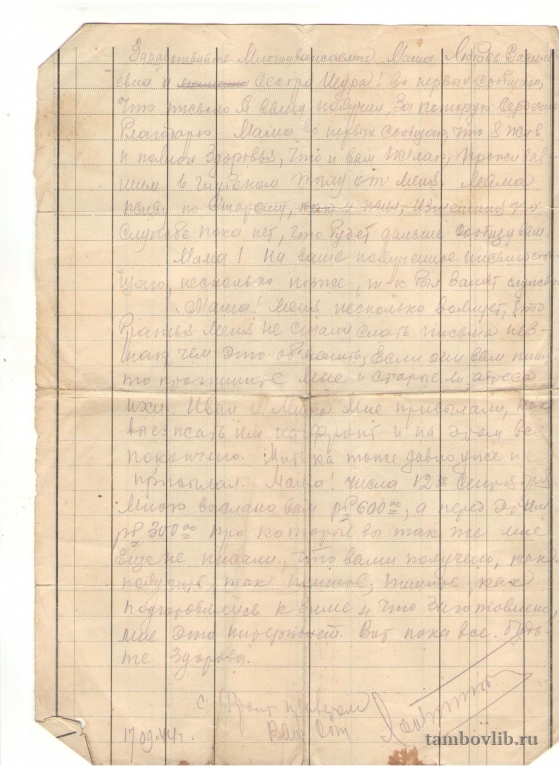 Здравствуйте Многоуважаемые Мама Любовь Васил
евна и сестра Шура! Во первых сообщаю,
Что письмо я ваше получил, За которую Сердечно
Благодарю Мама во первых сообщаю, что я жив
и полном Здоровья, Что и вам желаю,
в глубоком тылу от меня Мама
по старому, как и жил, изменения по
службе пока нет, что будет дальше сообщу вам.
Мама! На ваше полученное письмо
несколько позже, т-к был занят службой
Мама! меня несколько волнует, что
Братья меня не стали слать письма нез-
наю чем это объяснить, Если они вам пишут
то пропишите мне и старые ли адреса
ихи. Иван и Митя мне присылали, как
писать им на фронт и на этом все
покончено. Митька тоже давно уже не
присылал. Мама! числа 12го Сентября
Мною выслано вам рб 600 00, а перед этим
рб 300 00 про которые вы так же мне
Еще не писали, что вами получено, как
получите, так пишите, пишите, как
подготовились к зиме и что Заготовлено,
мне это интересует. Вот пока все. Будь-
те Здоровы.
С Фронт приветом
Ваш Сын
17.09.44г.
tambovlib.ru